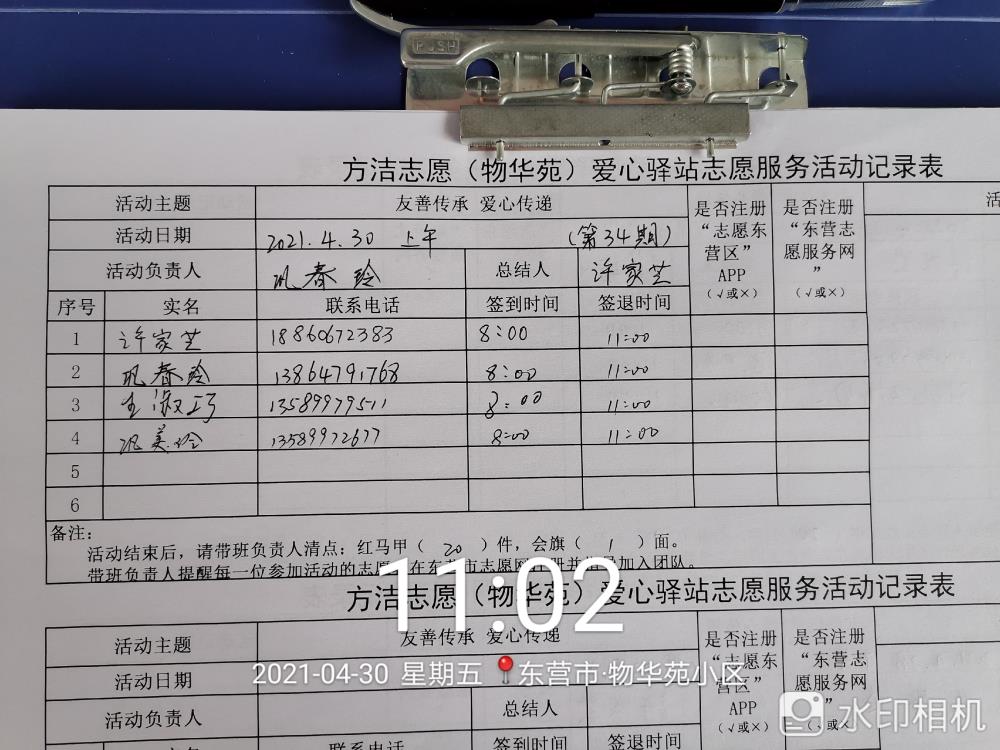 PUSH
方洁志愿（物华苑）爱心驿站志愿服务活动记录表
活动主题 友善传承 爱心传递 是否注册“志愿东营区”APP（√或×） 是否注册“东营志愿服务网”（√或×） 活
活动日期 2021.4.30 上午 （第34期）
活动负责人 巩春玲 总结人 许家芝
序号 实名 联系电话 签到时间 签退时间
1 许家芝 18860672383 8:00 11:00
2 巩春玲 13864791768 8:00 11:00
3 13589979511 8:00 11:00
4 巩美玲 13589972677 8:00 11:00
5
6
备注：
活动结束后，请带班负责人清点：红马甲（ 20 ）件，会旗（ 1 ）面。
带班负责人提醒每一位参加活动的志愿 在东营市志愿网 加入团队。
11:02
方洁志愿（物华苑）爱心驿站志愿服务活动记录表
活动主题 友善传承 爱心传递 是否注册“志愿东营区”APP（√或×） 是否注册“东营志愿服务网”（√或×）
活动日期
2021-04-30 星期五 东营市·物华苑小区
活动负责人 总结人
水印相机
实名 联系电话 签到时间 签退时间